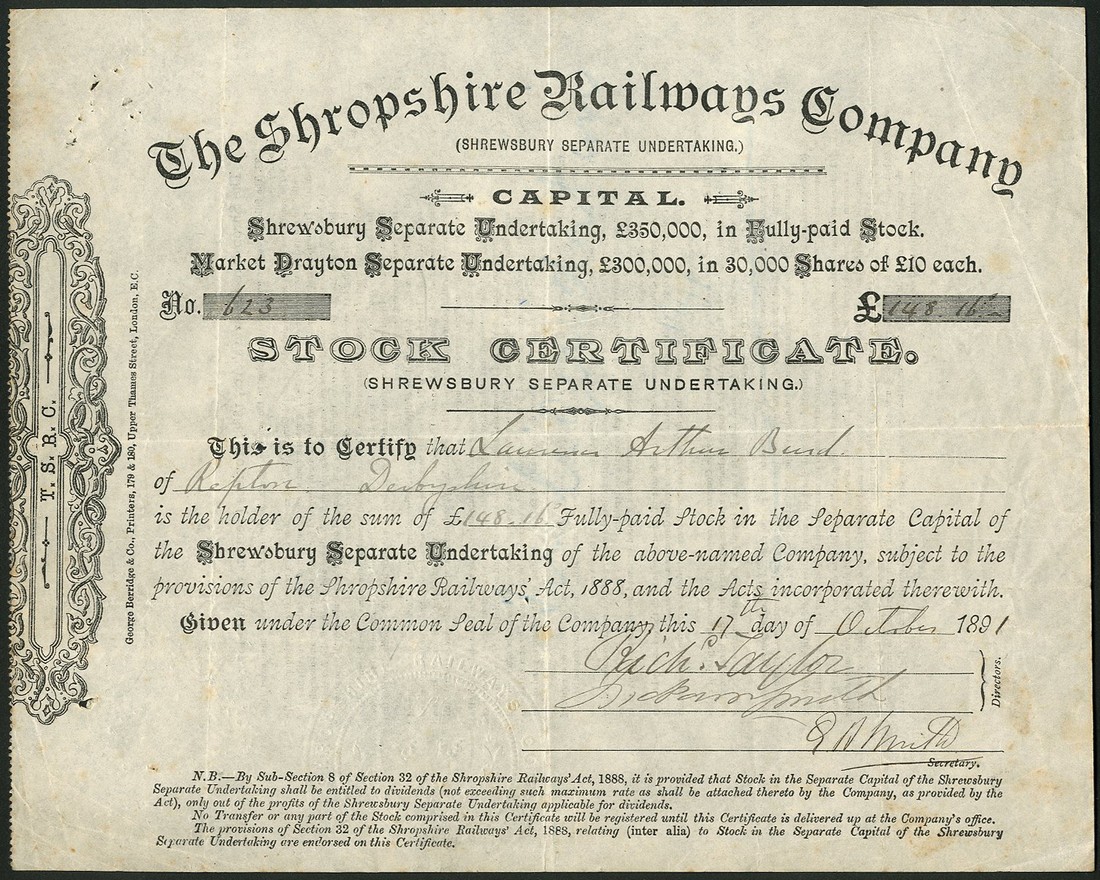 The Shropshire Railways Company
(SHREWSBURY SEPARATE UNDERTAKING.)
CAPITAL.
Shrewsbury Separate Undertaking, £350,000, in Fully-paid Stock.
Market Drayton Separate Undertaking, £300,000, in 30,000 Shares of £10 each.
No. 623 £148.16.-
STOCK CERTIFICATE.
(SHREWSBURY SEPARATE UNDERTAKING.)
This is to Certify that Arthur
of Repton Derbyshire
is the holder of the sum of £148.16 Fully-paid Stock in the Separate Capital of
the Shrewsbury Separate Undertaking of the above-named Company, subject to the
provisions of the Shropshire Railways' Act, 1888, and the Acts incorporated therewith.
Given under the Common Seal of the Company, this 17th day of October 1891
Richd. Taylor
Smith
Directors.
Smith
Secretary.
N.B.—By Sub-Section 8 of Section 32 of the Shropshire Railways' Act, 1888, it is provided that Stock in the Separate Capital of the Shrewsbury
Separate Undertaking shall be entitled to dividends (not exceeding such maximum rate as shall be attached thereto by the Company, as provided by the
Act), only out of the profits of the Shrewsbury Separate Undertaking applicable for dividends.
No Transfer or any part of the Stock comprised in this Certificate will be registered until this Certificate is delivered up at the Company's office.
The provisions of Section 32 of the Shropshire Railways' Act, 1888, relating (inter alia) to Stock in the Separate Capital of the Shrewsbury
Separate Undertaking are endorsed on this Certificate.
T. S. R. C.
George Berridge & Co., Printers, 179 & 180, Upper Thames Street, London, E.C.